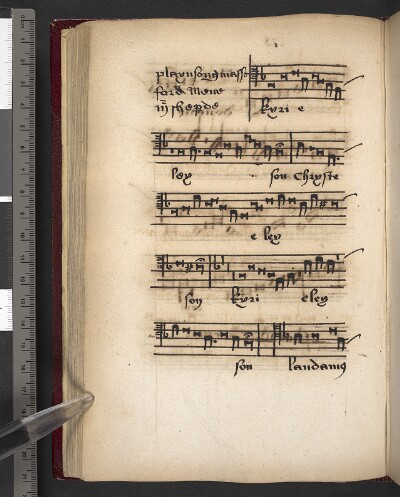 playnsong masse
for a Mene
iij sheppde
kyri e
ley son Chryste
e ley
son kyri eley
son laudamus